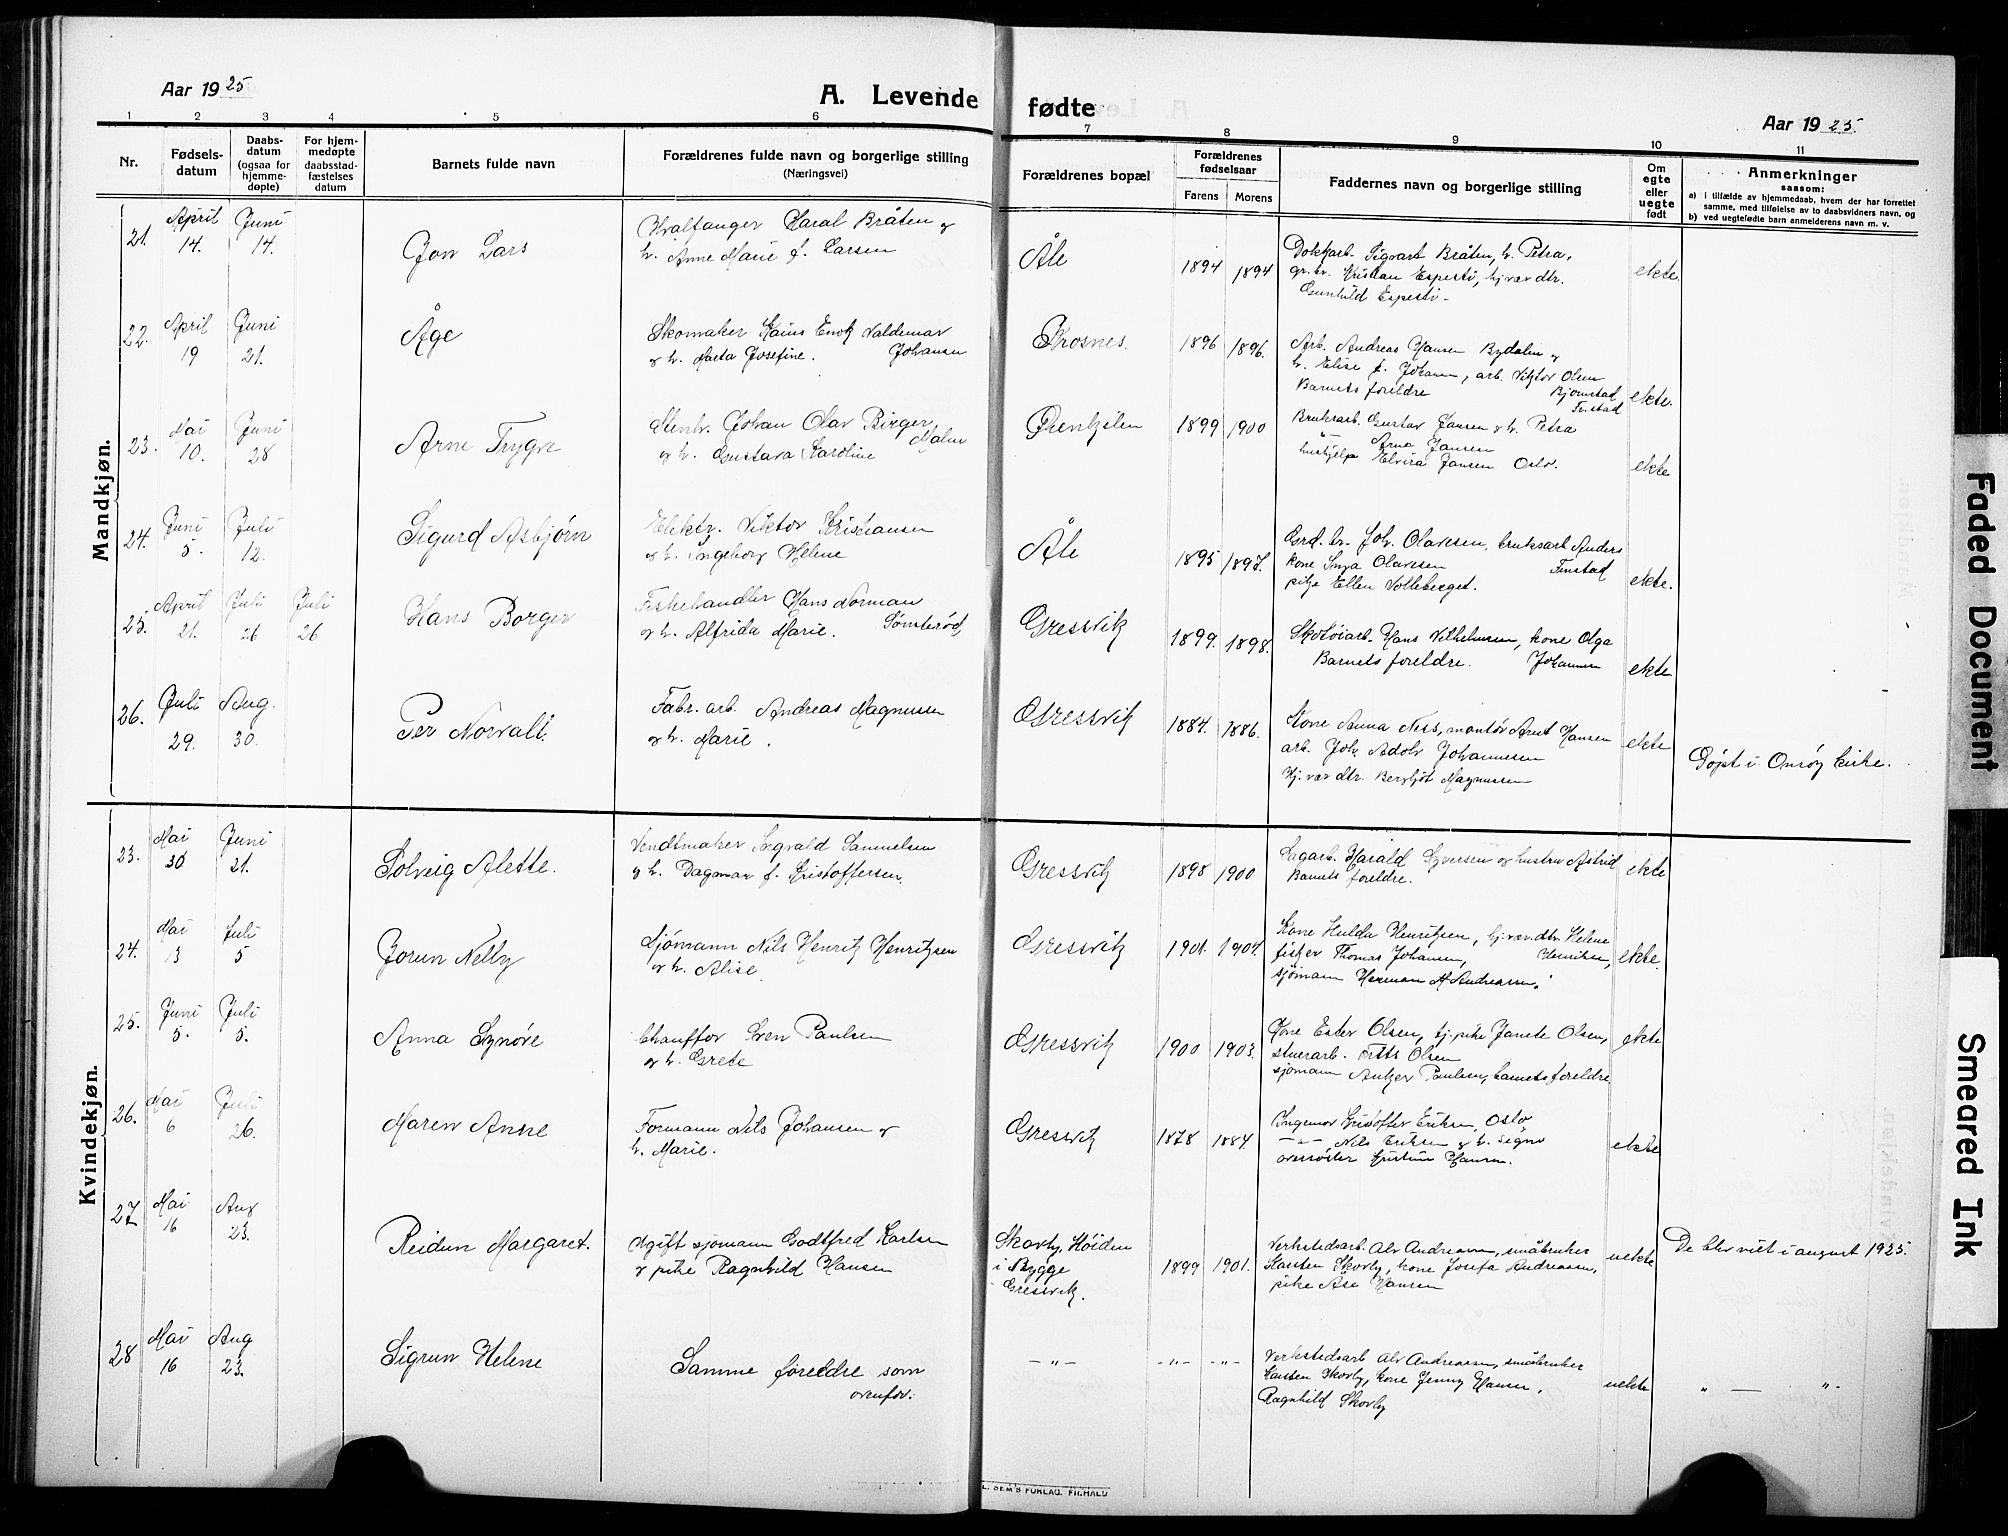 Aar 1925
A. Levende
fødte
Aar 1925.
1 2 3 4 5 6 7 8 9 10 11
Nr.
Fødsels-
datum
Daabs-
datum
(ogsaa for
hjemme-
døpte)
For hjem-
medøpte
daabsstad-
fæstelses
datum
Barnets fulde navn
Forældrenes fulde navn og borgerlige stilling
(Næringsvei)
Forældrenes bopæl
Forældrenes
fødselsaar
Farens Morens
Faddernes navn og borgerlige stilling
Om
egte
eller
uegte
født
Anmerkninger
saasom:
a) i tilfælde av hjemmedaab, hvem der har forrettet
samme, med tilføielse av to daabsvidners navn, og
b) ved uegtefødte barn anmelderens navn m. v.
Mandkjøn.
21. April 14. Juni 14.
Jon Lars
Hvalfanger Haral Bråten og
h. Anne Marie f. Larsen
Åle
1894 1894
Dokkarb. Sigvart Bråten, h. Petra,
gr.br. Kristian Espesti, hj.vær dtr.
Gunhild Espesti
ekte.
22. April 19 Juni 21.
Åge
Skomaker Kains Enok Valdemar
og h. Marta Josefine. Johansen
Krosnes.
1896 1896.
Arb. Andreas Hansen Rydalen og
h. Elise f. Johansen, arb. Viktor Olsen
Barnets foreldre Bjørnstad
Finstad
ekte.
23. Mai 10. Juni 28
Arne Trygve
Stenh. Johan Olav Birger
og h. Gustava Karoline Malm
Ørenkilen
1899 1900
Bruksarb. Gustav Jansen og h. Petra
Arne Jansen
hushjelp Elvira Jansen Oslo.
ekte
24. Juni 5. Juli 12.
Sigurd Asbjørn
Elektr. Viktor Kristiansen
og h. Ingeborg Helene
Åle
1895 1897.
Grd.br. Joh. Olavesen, bruksarb. Anders
kone Inga Olavesen Finstad
pike Ellen Volleberget.
ekte.
25. April 21. Juli 26 Juli 26
Hans Borger
Fiskehandler Hans Norman
og h. Alfrida Marie. Sønsterød
Gressvik
1899. 1898.
Skotøiarb. Hans Vilhelmsen, kone Olga
Barnets foreldre. Johannesen
ekte
26. Juli 29. Aug. 30.
Per Norvalt.
Fabr. arb. Andreas Magnussen
og h. Marie.
Gressvik
1884. 1886.
Kone Anna Næs, montør Arnt Hansen
arb. Joh. Adolv Johannesen
Hj. vær dtr. Bergljot Magnussen
ekte
Døpt i Onsøy kirke.
Kvindekjøn.
23. Mai 30 Juni 21.
Solveig Alette.
Vendtmaker Sigvald Samuelsen
og h. Dagmar f. Kristoffersen.
Gressvik
1898 1900
Sagarb. Harald Syversen og hustru Astrid
Barnets foreldre.
ekte
24. Mai 13 Juli 5
Jorun Nelly
Sjømann Nils Henrik Henriksen
og h. Alise.
Gressvik
1901. 1904.
Kone Hulda Henriksen, hj.vær.dtr. Helene
fisker Thomas Johansen, Henriksen,
sjømann Herman M Andreassen.
ekte.
25. Juni 5. Juli 5.
Anna Synøve
Chauffør Sven Paulsen
og h. Grete
Gressvik
1900 1903.
Kone Ester Olsen, tj. pike Janete Olsen,
stuerarb. Olsen
sjømann Anker Paulsen, barnets foreldre
ekte
26. Mai 6 Juli 26.
Maren Anne
Formann Nils Johansen og
h. Marie.
Gressvik
1878 1884.
Ingeniør Kristoffer Eriksen, Oslo
—"— Nils Eriksen og h. Signe
oversøster Kristine Hansen.
ekte
27 Mai 16 Aug 23.
Reidun Margaret.
Ugift sjømann Godtfred Karlsen
og pike Ragnhild Hansen
Skovby, Høiden
i Rygge
Gressvik.
1899 1901.
Verkstedsarb. Alv Andreassen, småbruker
Karsten Skovby, kone Josefa Andreassen,
pike Åse Hansen
uekte
De blev viet i august 1925.
28 Mai 16 Aug 23.
Sigrun Helene
Samme foreldre som
ovenfor.
—"— —"— —"—
Verkstedsarb Alv Andreassen, småbruker
Karsten Skovby, kone Jenny Hansen,
Ragnhild Skovby
uekte
" — "
SEM'S FORLAG. FR.HALD
Faded Document
Smeared Ink